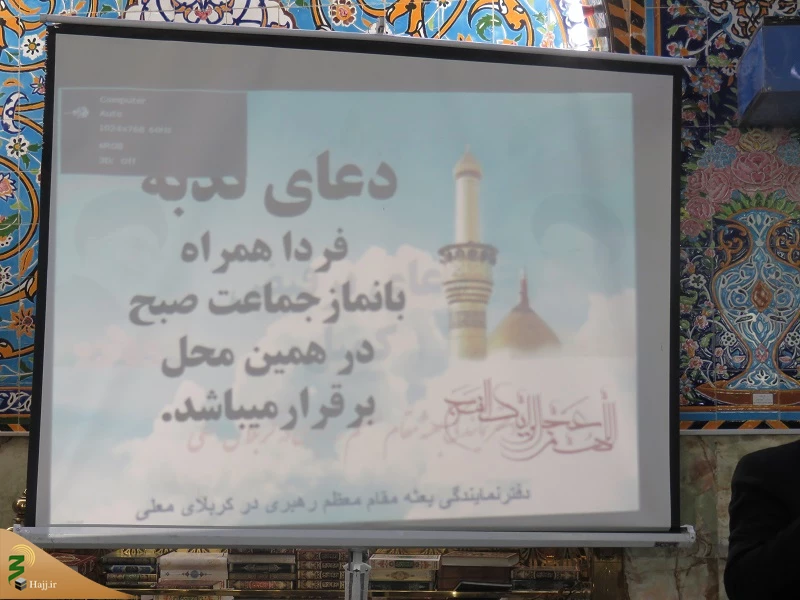 Computer
Auto
1024x768 60Hz
sRGB
3D: Off
دعای ندبه
فردا همراه
بانماز جماعت صبح
در همین محل
برقرار میباشد.
اللهم عجل لولیک الفرج
دفتر نمایندگی بعثه مقام معظم رهبری در کربلای معلی
Hajj.ir